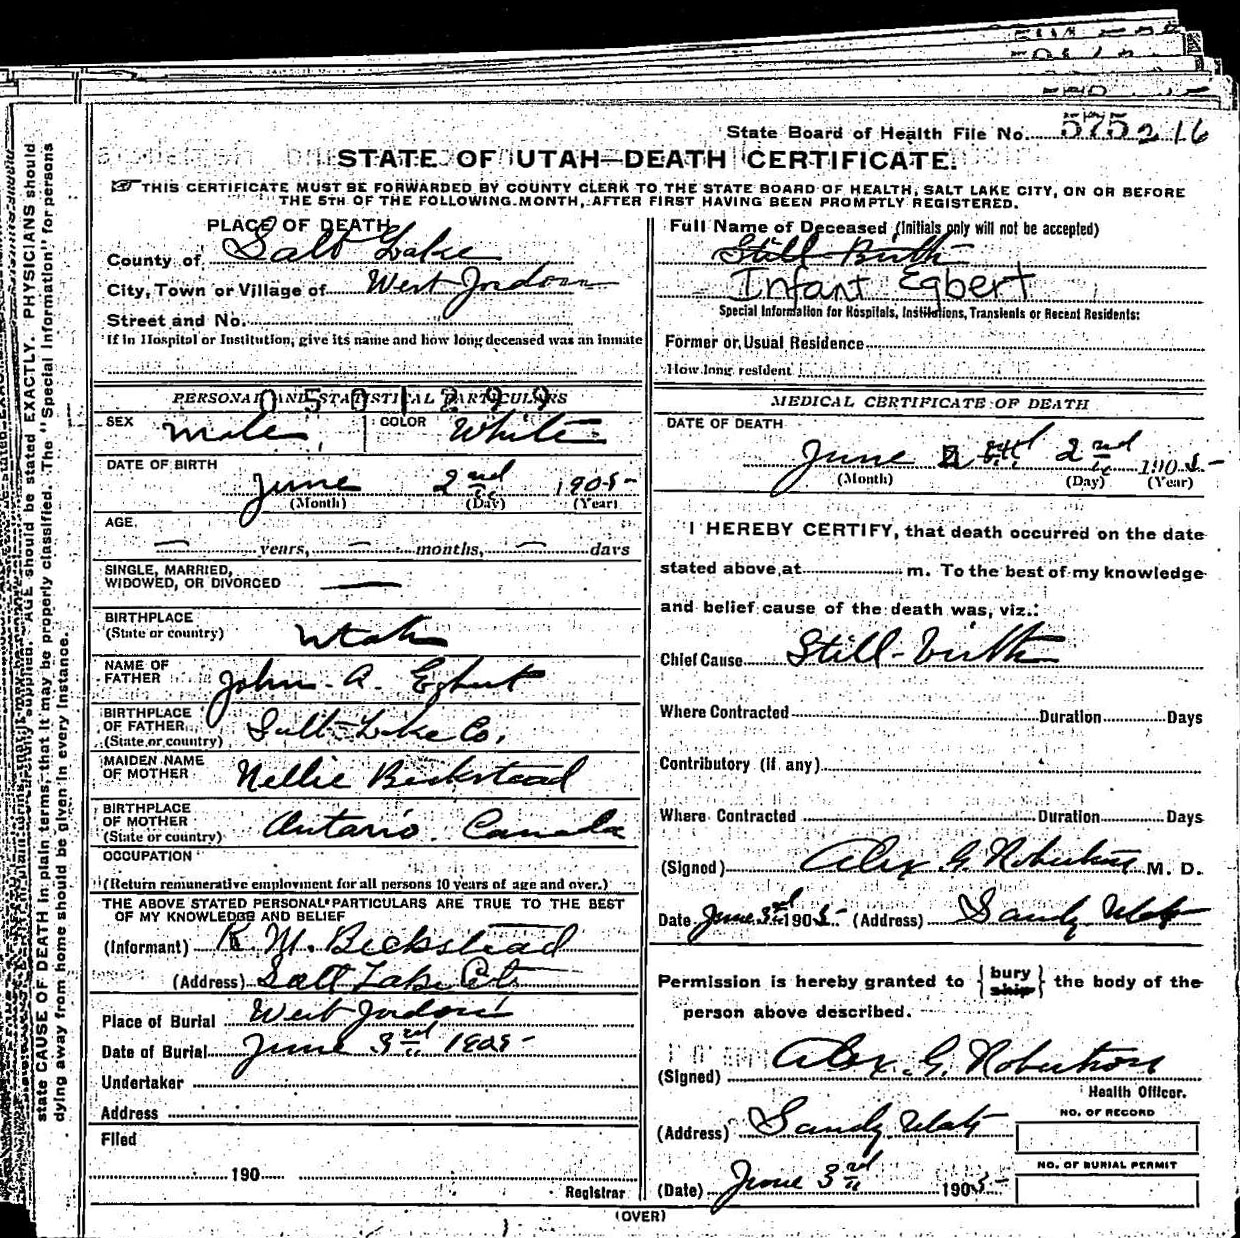 State Board of Health File No. 575216
STATE OF UTAH—DEATH CERTIFICATE.
THIS CERTIFICATE MUST BE FORWARDED BY COUNTY CLERK TO THE STATE BOARD OF HEALTH, SALT LAKE CITY, ON OR BEFORE
THE 5TH OF THE FOLLOWING MONTH, AFTER FIRST HAVING BEEN PROMPTLY REGISTERED.
PLACE OF DEATH
County of Salt Lake
City, Town or Village of West Jordan
Street and No.
If in Hospital or Institution, give its name and how long deceased was an inmate
PERSONAL AND STATISTICAL PARTICULARS
0501299
SEX Male, COLOR White
DATE OF BIRTH
June 2nd 1905
(Month) (Day) (Year)
AGE,
— years, — months, — days
SINGLE, MARRIED,
WIDOWED, OR DIVORCED —
BIRTHPLACE
(State or country) Utah
NAME OF
FATHER John A. Egbert
BIRTHPLACE
OF FATHER Salt Lake Co.
(State or country)
MAIDEN NAME
OF MOTHER Nellie Beckstead
BIRTHPLACE
OF MOTHER
(State or country) Antario. Canada
OCCUPATION
(Return remunerative employment for all persons 10 years of age and over.)
THE ABOVE STATED PERSONAL PARTICULARS ARE TRUE TO THE BEST
OF MY KNOWLEDGE AND BELIEF
(Informant) R. M. Beckstead
(Address) Salt Lake City
Place of Burial West Jordan
Date of Burial June 3rd 1905
Undertaker
Address
Filed
190
Registrar
Full Name of Deceased (Initials only will not be accepted)
Still Birth
Infant Egbert
Special Information for Hospitals, Institutions, Transients or Recent Residents:
Former or Usual Residence
How long resident
MEDICAL CERTIFICATE OF DEATH
DATE OF DEATH
June 2nd 1905
(Month) (Day) (Year)
I HEREBY CERTIFY, that death occurred on the date
stated above, at m. To the best of my knowledge
and belief cause of the death was, viz.:
Chief Cause Still-birth
Where Contracted Duration Days
Contributory (if any)
Where Contracted Duration Days
(Signed) Alex G. Robertson M. D.
Date June 3rd 1905 (Address) Sandy Utah
Permission is hereby granted to { bury ship } the body of the
person above described.
(Signed) Alex. G. Robertson
Health Officer.
(Address) Sandy. Utah
NO. OF RECORD
NO. OF BURIAL PERMIT
(Date) June 3rd 1905
(OVER)
state CAUSE OF DEATH in plain terms, that it may be properly classified. The "Special Information" for persons
dying away from home should be given in every instance.
AGE should be stated EXACTLY. PHYSICIANS should